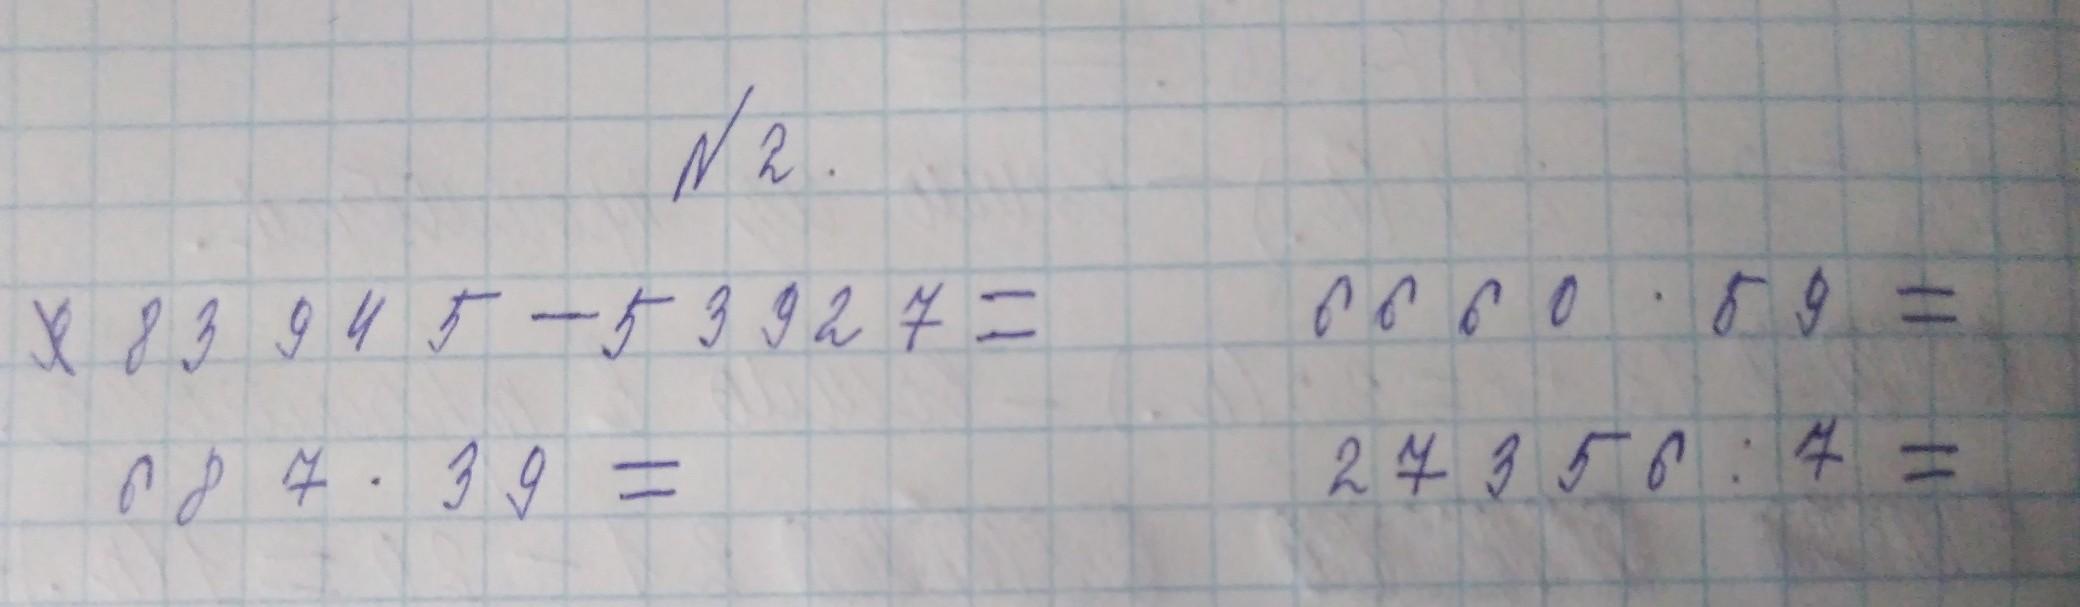 № 2.
83945-53927= 6660·59=
687·39= 27356:7=